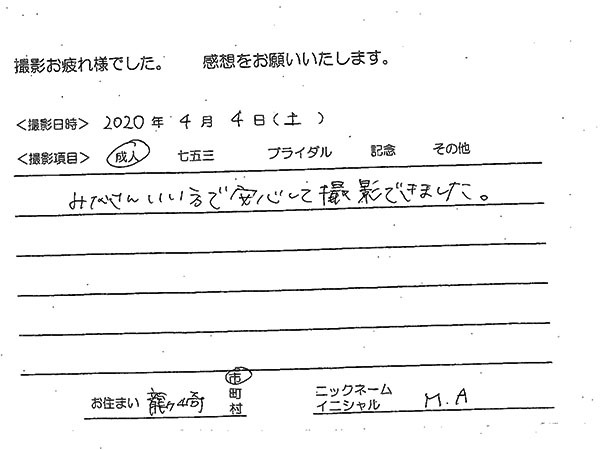 撮影お疲れ様でした。 感想をお願いいたします。
<撮影日時> 2020 年 4 月 4 日 (土)
<撮影項目> 成人 七五三 ブライダル 記念 その他
みなさんいい方で安心して撮影できました。
お住まい 龍ヶ崎 市 町 村 ニックネーム イニシャル M.A